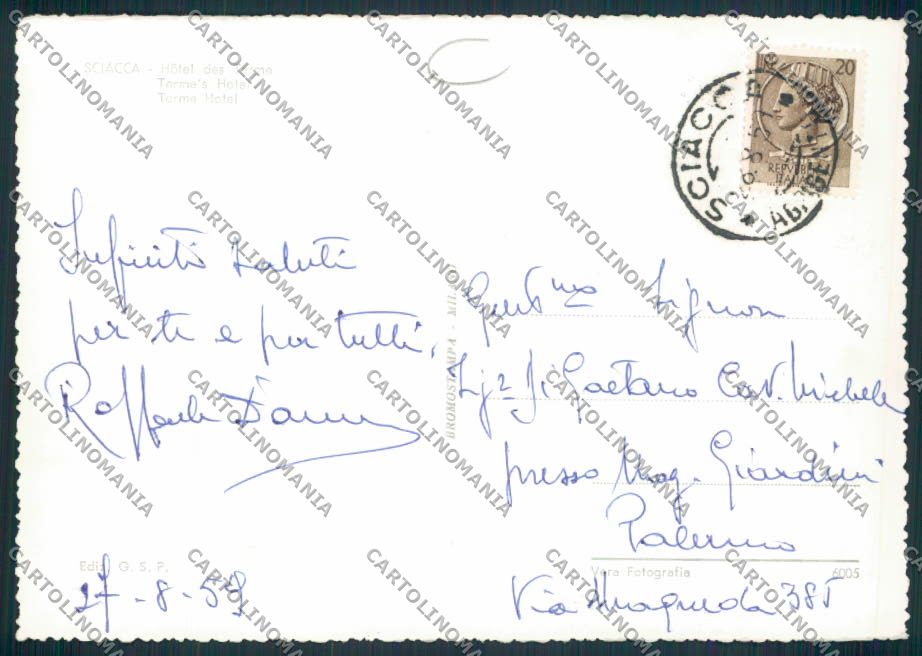 SCIACCA - Hôtel des Terme
Terme's Hotel
Terme Hotel
20
REPUBBLICA
ITALIANA
SCIACCA
saluti
per te e per tutti,
Raffaele
27-8-58
Ediz. G. S. P.
BROMOSTAMPA - MILANO
Gent.mo Signor
Gaetano Cav. Michele
presso Mag. Giardini
Palermo
Via Maqueda 385
Vera Fotografia
6005
CARTOLINOMANIA